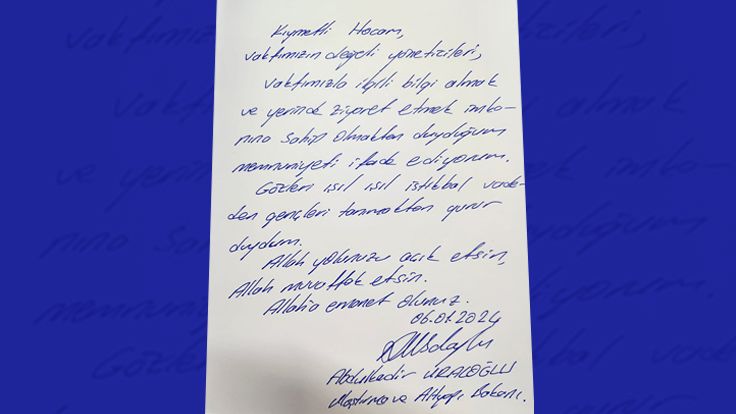 Kıymetli Hocam,
vakfımızın değerli yöneticileri,
vakfımızla ilgili bilgi almak
ve yerinde ziyaret etmek imka-
nına sahip olmaktan duyduğum
memnuniyeti ifade ediyorum.
Gözleri ışıl ışıl istikbal vade-
den gençleri tanımaktan gurur
duydum.
Allah yolunuzu açık etsin,
Allah muvaffak etsin.
Allah'a emanet olunuz.
06.01.2024
Abdulkadir URALOĞLU
Ulaştırma ve Altyapı Bakanı.